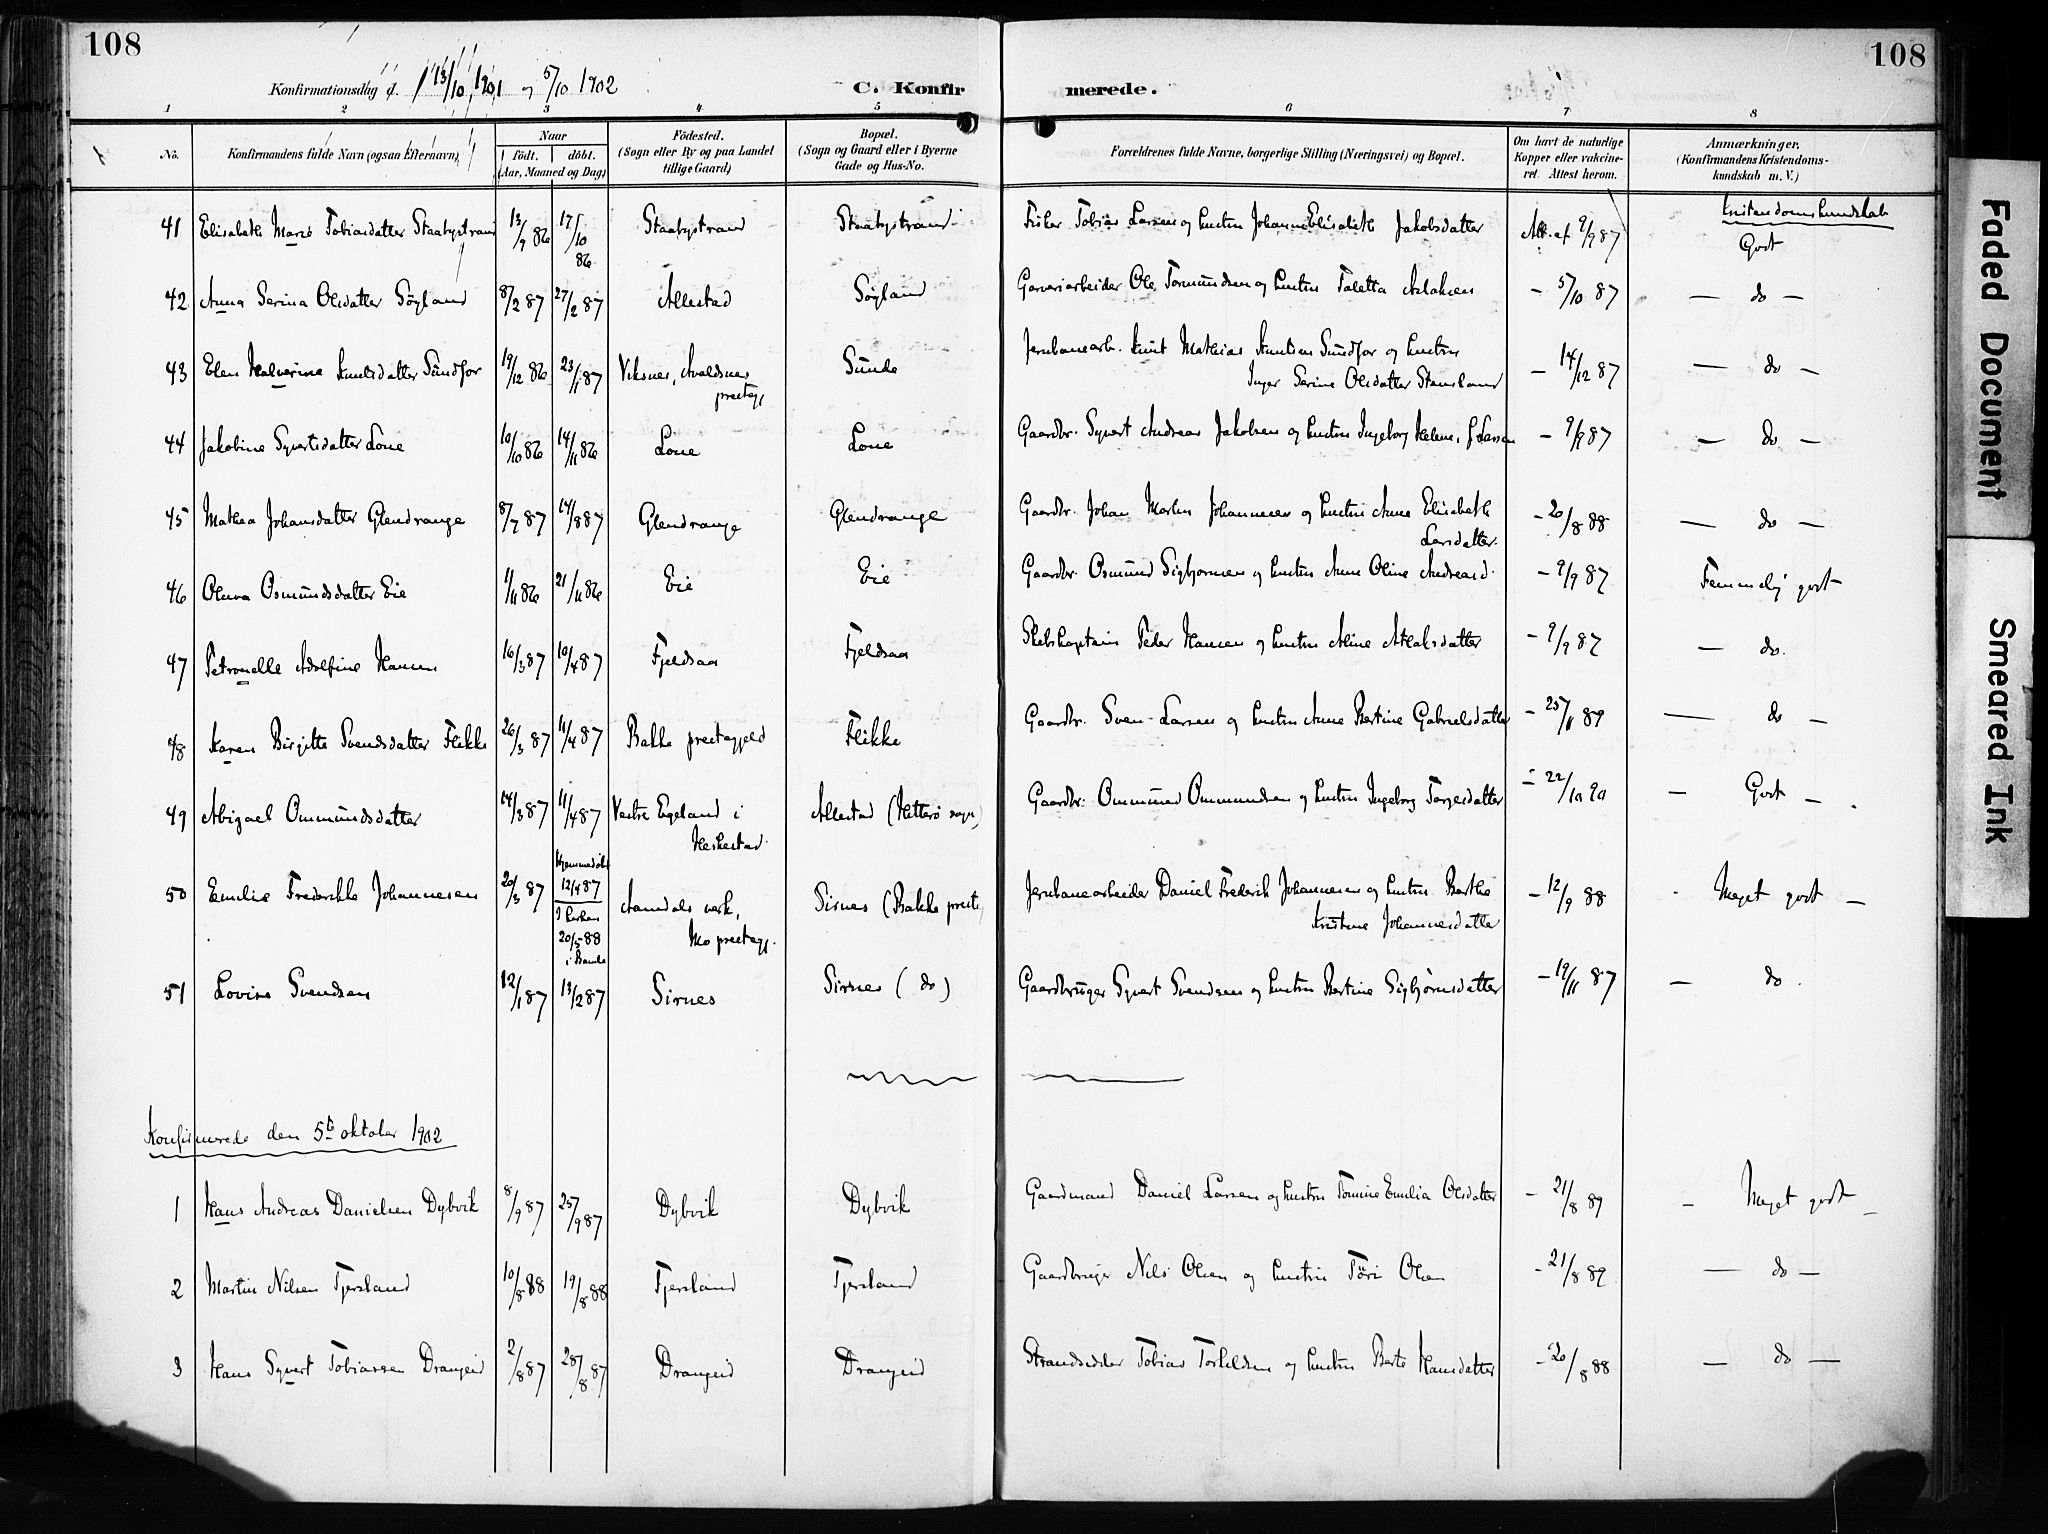 108
108
Konfirmationsdag d. 13/10 1901 og 5/10 1902
C. Konfir merede.
1 2 3 4 5 6 7 8
No.
Konfirmandens fulde Navn (ogsaa Efternavn).
Naar
født. døbt.
(Aar, Maaned og Dag)
Födested.
(Sogn eller By og paa Landet tillige Gaard)
Bopæl.
(Sogn og Gaard eller i Byerne Gade og Hus-No.
Forældrenes fulde Navne, borgerlige Stilling (Næringsvei) og Bopæl.
Om havt de naturlige Kopper eller vakcineret. Attest herom.
Anmærkninger.
(Konfirmandens Kristendomskundskab m. V.)
Kristendomskundskab
41 Elisabeth Marie Tobiasdatter Staabystrand 13/9 86 17/10 86 Staabystrand Staabystrand Fisker Tobias Larsen og hustru Johanne Elisabeth Jakobsdatter Att. af 9/9 87 Godt
42 Anna Serina Olsdatter Søyland 8/2 87 27/2 87 Allestad Søyland Garveriarbeider Ole Tormundsen og hustru Taletta Aslaksen - 5/10 87 - do -
43 Elen Halverine Knutsdatter Sundfor 19/12 86 23/1 87 Viksnes, Avaldsnes Sunde Jernbanearb. Knut Mathias Knutsen Sundfor og hustru - 14/12 87 - do -
prestegj. Inger Serine Olsdatter Stensland
44 Jakobine Syvertsdatter Lone 10/10 86 14/11 86 Lone Lone Gaardbr. Syvert Andreas Jakobsen og hustru Ingeborg Helene f. Larsen - 9/9 87 - do -
45 Mathea Johansdatter Glendrange 8/7 87 14/8 87 Glendrange Glendrange Gaardbr. Johan Martin Johannesen og hustru Anne Elisabeth - 20/8 88 - do -
Larsdatter.
46 Oluva Osmundsdatter Eie 1/11 86 21/11 86 Eie Eie Gaardbr. Osmund Sigbjornsen og hustru Anne Oline Andreasd. - 9/9 87 Temmelig godt
47 Petronelle Adolfine Hansen 16/3 87 10/4 87 Fjeldsaa Fjeldsaa Skibskaptein Peder Hansen og hustru Aline Aslaksdatter - 9/9 87 - do.
48 Karen Birgitte Svendsdatter Flikke 26/3 87 11/4 87 Bakke prestegjeld Flikke Gaardbr. Sven Larsen og hustru Anne Bertine Gabrielsdatter - 25/11 89 - do -
49 Abigael Ommundsdatter 14/3 87 11/4 87 Vestre Egeland i Allestad (Hitterø sogn) Gaardbr. Ommund Ommundsen og hustru Ingeborg Torgersdatter - 22/10 90 - Godt -
Heskestad.
50 Emilie Frederikke Johannesen 20/3 87 Hjemmedøbt 12/4 87 Aamdals verk, Sirnes (Bakke preste) Jernbanearbeider Daniel Frederik Johannesen og hustru Berthe - 12/9 88 - Meget godt -
I kirken 20/5 88 i Bamle Mo prestegj. Kristine Johannesdatter
51 Lovise Svendsen 12/1 87 13/2 87 Sirnes Sirnes (do) Gaardbruger Syvert Svendsen og hustru Bertine Sigbjørnsdatter - 19/11 87 - do.
Konfirmerede den 5te oktober 1902
1 Hans Andreas Danielsen Dybvik 8/9 87 25/9 87 Dybvik Dybvik Gaardmand Daniel Larsen og hustru Tomine Emilia Olsdatter - 21/8 89 - Meget godt -
2 Martin Nilsen Tjersland 10/8 88 19/8 88 Tjersland Tjersland Gaardbruger Nils Olsen og hustru Töri Olsen - 21/8 89 - do -
3 Hans Syvert Tobiassen Drangeid 2/8 87 28/8 87 Drangeid Drangeid Strandsidder Tobias Torkildsen og hustru Berte Hansdatter - 20/8 88 - do -
Faded Document
Smeared Ink